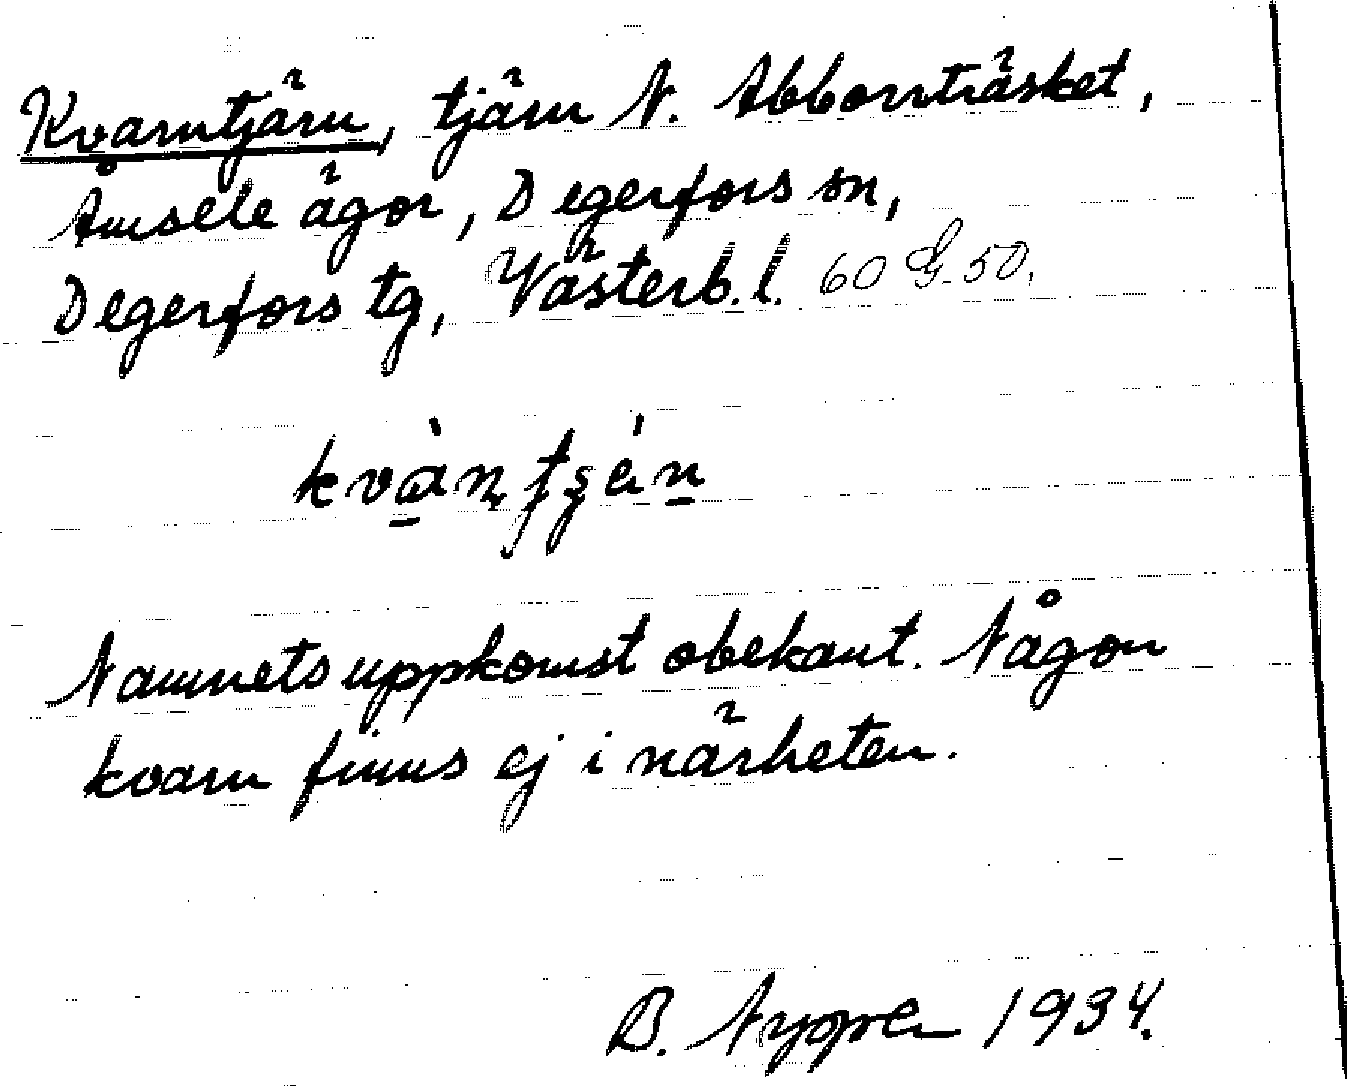 Kvarntjärn, tjärn N. Abborrträsket,
Åmsele ägor, Degerfors sn,
Degerfors tg, Västerb. l. 60 G. 50.
Namnets uppkomst obekant. Någon
kvarn finns ej i närheten.
B. 1934.